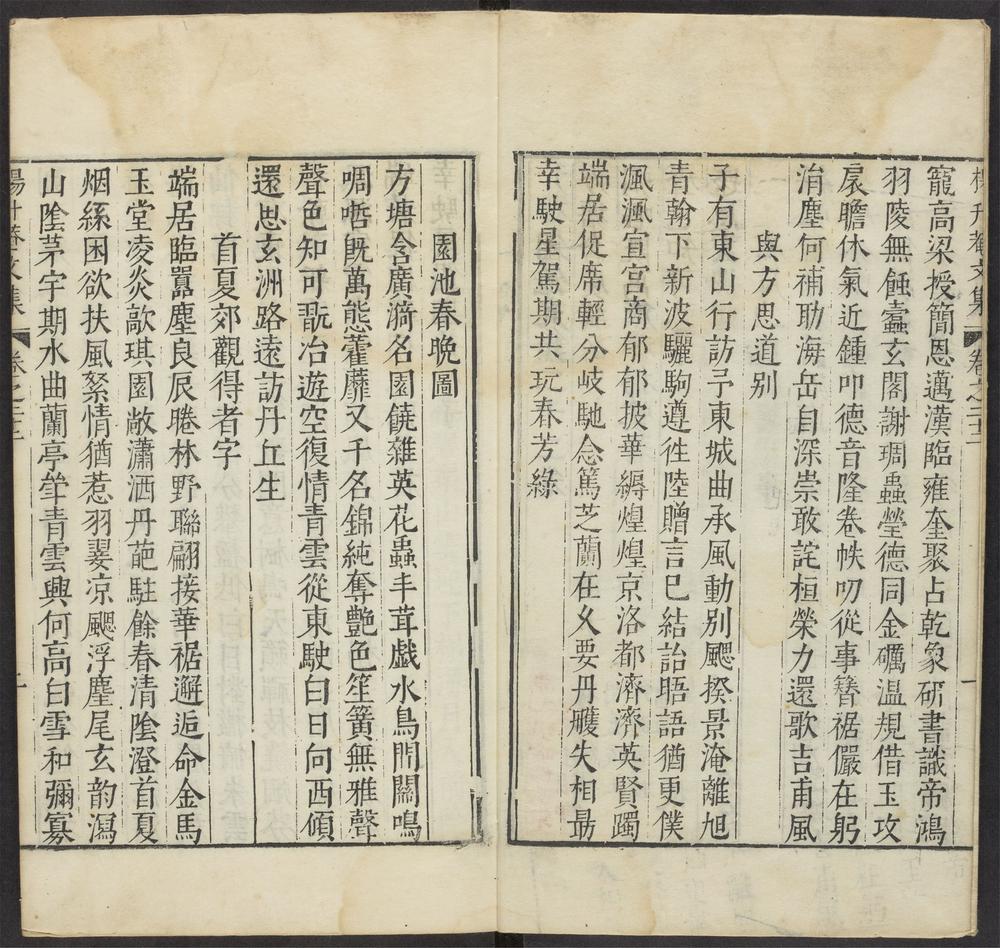 楊升菴文集 卷之二十二
寵高梁授簡恩邁漢臨雍奎聚占乾象硏書識帝鴻
羽陵無蝕蠹玄閣謝琱蟲瑩德同金礪溫規借玉攻
扆瞻休氣近鍾叩德音隆卷帙叨從事簪裾儼在躬
涓塵何補助海岳自深崇敢詫桓榮力還歌吉甫風
與方思道別
子有東山行訪予東城曲承風動別颸揆景淹離旭
青翰下新波驪駒遵往陸贈言巳結詒晤語猶更僕
渢渢宣宮商郁郁披華縟煌煌京洛都濟濟英賢躅
端居促席輕分岐馳念篤芝蘭在久要丹雘失相勗
幸駛星駕期共玩春芳綠
園池春晚圖
方塘含廣漪名園饒雜英花蟲丰茸戲水鳥間關鳴
啁哳旣萬態藿蘼又千名錦純奪艶色笙簧無雅聲
聲色知可翫冶遊空復情青雲從東駛白日向西傾
還思玄洲路遠訪丹丘生
首夏郊觀得者字
端居臨嚣塵良辰睠林野聯翩接華裾邂逅命金馬
玉堂凌炎歊琪園敞瀟洒丹葩駐餘春清陰澄首夏
烟絲困欲扶風絮情猶惹羽翣凉颸浮塵尾玄韵瀉
山陰茅宇期水曲蘭亭𠦑青雲興何高白雪和彌寡
楊升菴文集 卷之二十二 二